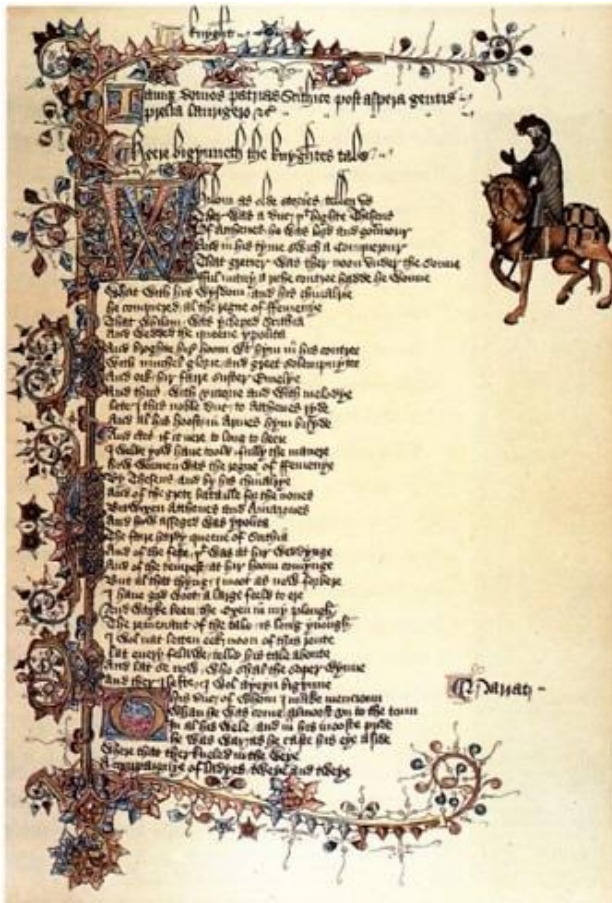 knyght
Iamqz domos patrias Scithice post aspera gentis
prelia laurigero &c
Heere bigynneth the knyghtes tale
Whilom as olde stories tellen us
Ther was a duc þt highte Theseus
Of Atthenes he was lord and governour
And in his tyme swich a conquerour
That gretter was ther noon under the sonne
Ful many a riche contree hadde he wonne
What with his wysdom and his chivalrie
He conquered al the regne of ffemenye
That whilom was ycleped Scithia
And wedded the queene ypolita
And broghte hire hoom with hym in his contree
With muchel glorie and greet solempnytee
And eek hir faire suster Emelye
And thus with victorie and with melodye
Lete I this noble duc to Atthenes ryde
And al his hoost in armes hym bisyde
And certes if it nere to long to heere
I wolde yow have toold fully the manere
How wonnen was the regne of ffemenye
By Theseus and by his chivalrye
And of the grete bataille for the nones
Bitwixen Atthenes and Amazones
And how asseged was ypolita
The faire hardy queene of Scithia
And of the feste þt was at hir weddynge
And of the tempest at hir hoom comynge
But al that thyng I moot as now forbere
I have god woot a large feeld to ere
And wayke been the oxen in my plough
The remenant of the tale is long ynough
I wol nat letten eek noon of this route
Lat every felawe telle his tale aboute
And lat se now who shal the soper wynne
And ther I lefte I wol ayeyn bigynne
This duc of whom I make mencioun
Narrat
Whan he was come almoost un to the toun
In al his wele and in his mooste pride
He was war as he caste his eye aside
Where that ther kneled in the weye
A compaignye of ladyes tweye and tweye